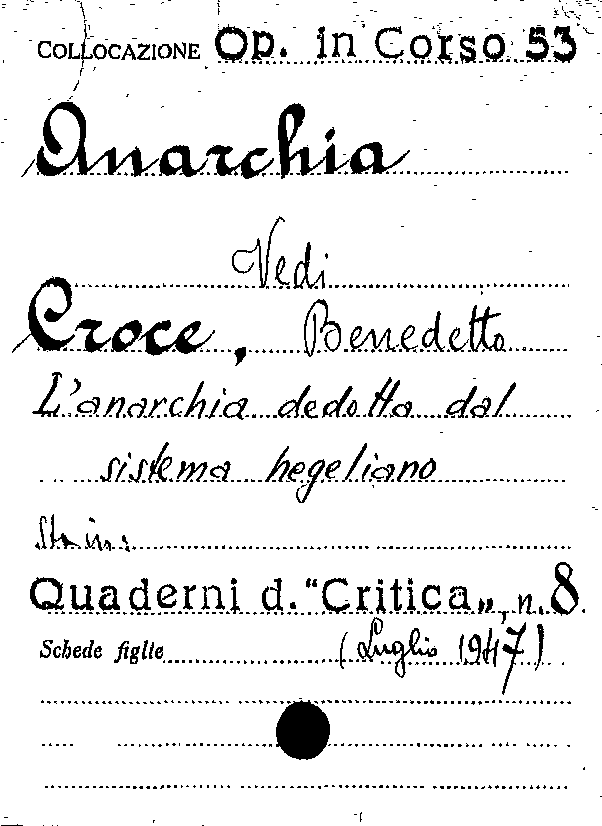 COLLOCAZIONE Op. in Corso 53
Anarchia
Vedi
Croce, Benedetto
L'anarchia dedotta dal
sistema hegeliano
Sta in:
Quaderni d. "Critica„, n. 8.
Schede figlie (Luglio 1947)